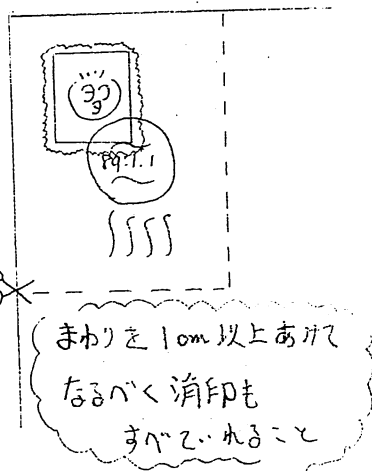 89.1.1
まわりを1cm以上あけて
なるべく消印も
すべていれること